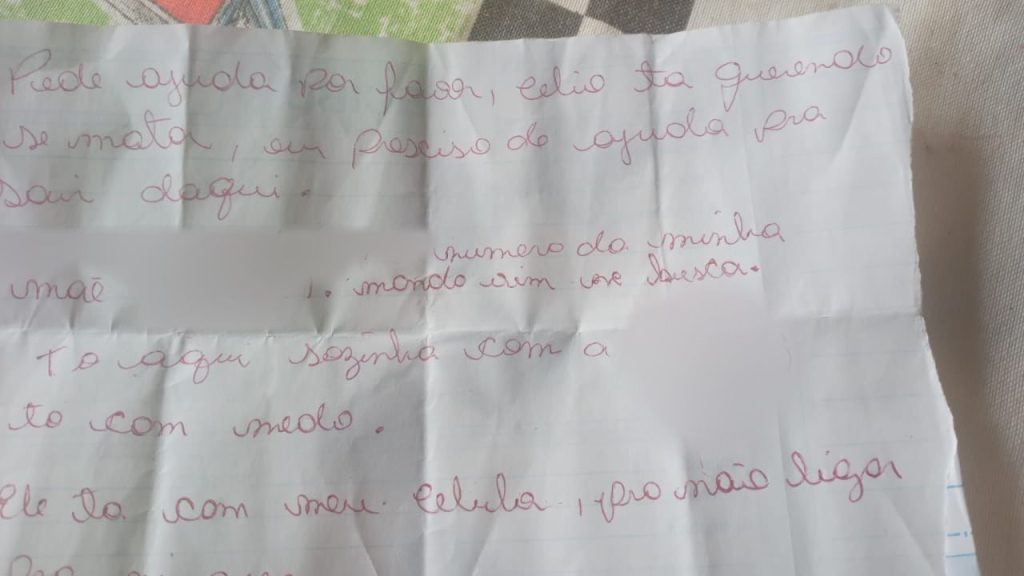 Pede ajuda por favor, celio ta querendo
se mata, eu presciso de ajuda pra
sair daqui.
numero da minha
mãe 1. manda vim me busca.
To aqui sozinha com a
to com medo.
Ele ta com meu celula, pra não ligar
Pra